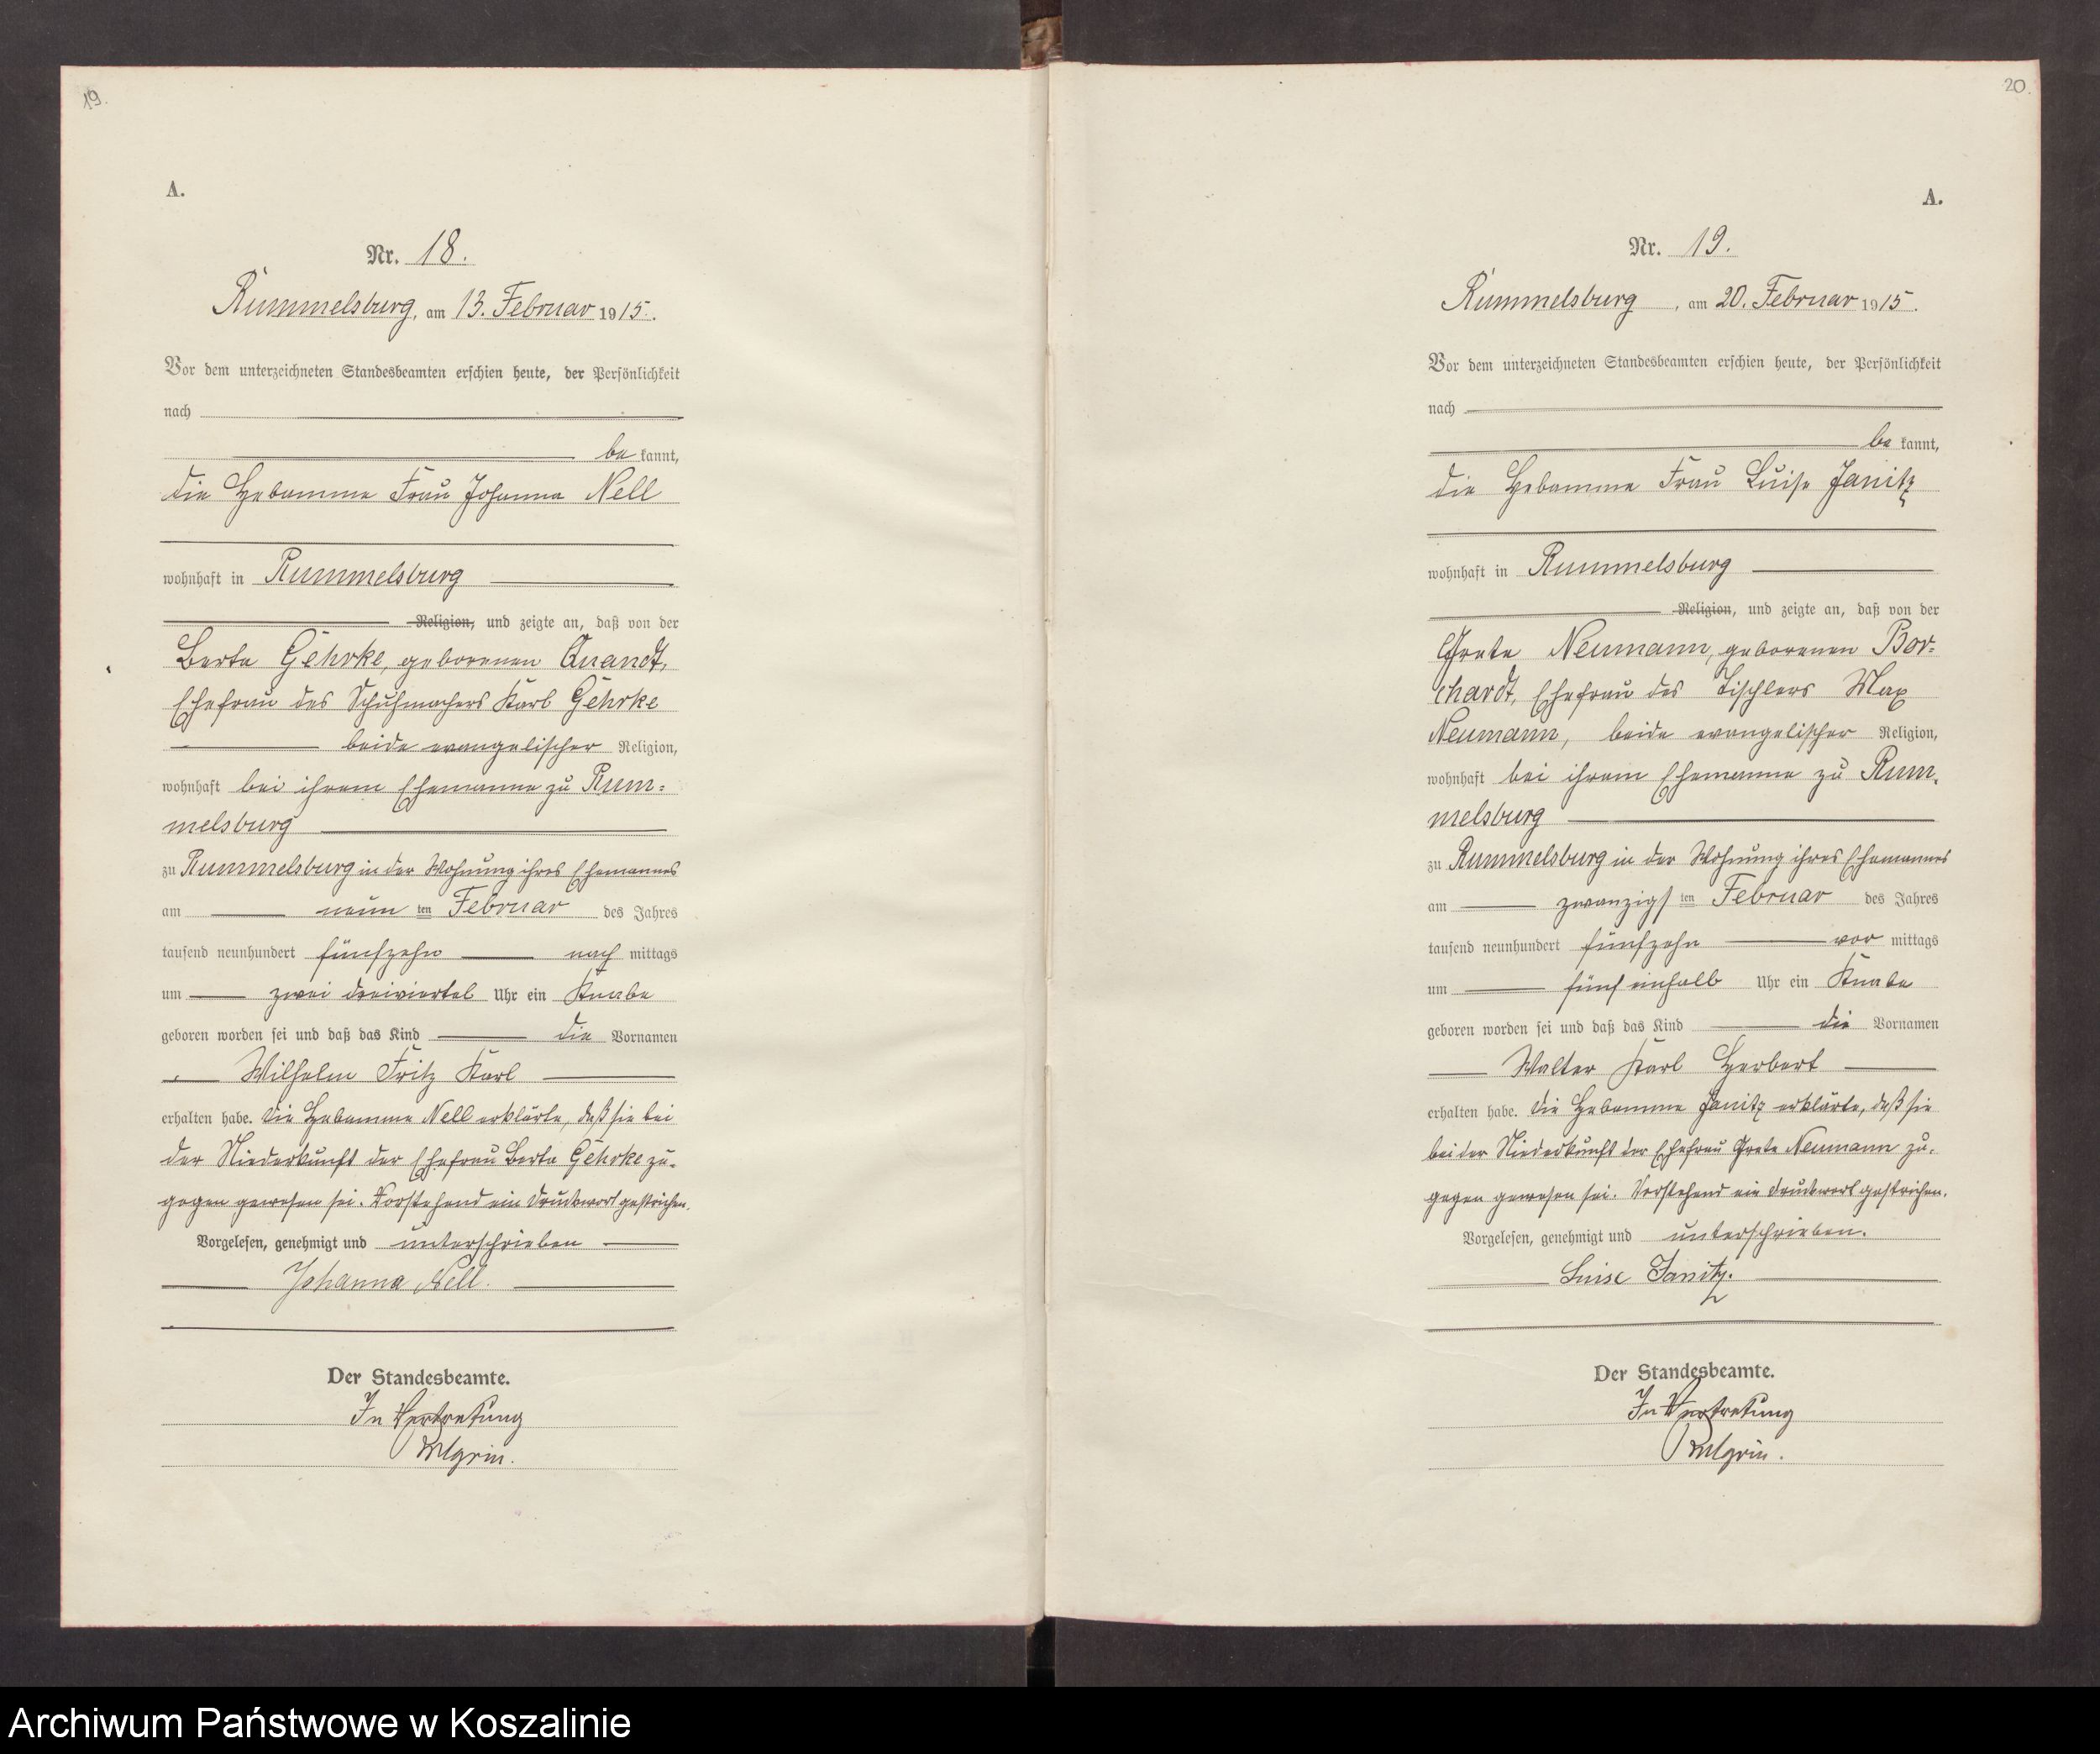 19.
A.
Nr. 18.
Rummelsburg, am 13. Februar 1915.
Vor dem unterzeichneten Standesbeamten erschien heute, der Persönlichkeit
nach
be kannt,
die Hebamme Frau Johanna Nell
wohnhaft in Rummelsburg
Religion, und zeigte an, daß von der
Berta Gehrke, geborenen Quandt,
Ehefrau des Schuhmachers Karl Gehrke
beide evangelischer Religion,
wohnhaft bei ihrem Ehemanne zu Rum-
melsburg
zu Rummelsburg in der Wohnung ihres Ehemannes
am neun ten Februar des Jahres
tausend neunhundert fünfzehn nach mittags
um zwei dreiviertel Uhr ein Knabe
geboren worden sei und daß das Kind die Vornamen
Wilhelm Fritz Karl
erhalten habe. Die Hebamme Nell erklärte, daß sie bei
der Niederkunft der Ehefrau Berta Gehrke zu-
gegen gewesen sei. Vorstehend ein Druckwort gestrichen.
Vorgelesen, genehmigt und unterschrieben
Johanna Nell.
Der Standesbeamte.
In Vertretung
20.
A.
Nr. 19.
Rummelsburg, am 20. Februar 1915.
Vor dem unterzeichneten Standesbeamten erschien heute, der Persönlichkeit
nach
be kannt,
die Hebamme Frau Luise Janitz
wohnhaft in Rummelsburg
Religion, und zeigte an, daß von der
Grete Neumann, geborenen Bor-
chardt, Ehefrau des Tischlers Max
Neumann, beide evangelischer Religion,
wohnhaft bei ihrem Ehemanne zu Rum-
melsburg
zu Rummelsburg in der Wohnung ihres Ehemannes
am zwanzigs ten Februar des Jahres
tausend neunhundert fünfzehn vor mittags
um fünf einhalb Uhr ein Knabe
geboren worden sei und daß das Kind die Vornamen
Walter Karl Herbert
erhalten habe. Die Hebamme Janitz erklärte, daß sie
bei der Niederkunft der Ehefrau Grete Neumann zu-
gegen gewesen sei. Vorstehend ein Druckwort gestrichen.
Vorgelesen, genehmigt und unterschrieben.
Luise Janitz.
Der Standesbeamte.
In Vertretung
Archiwum Państwowe w Koszalinie